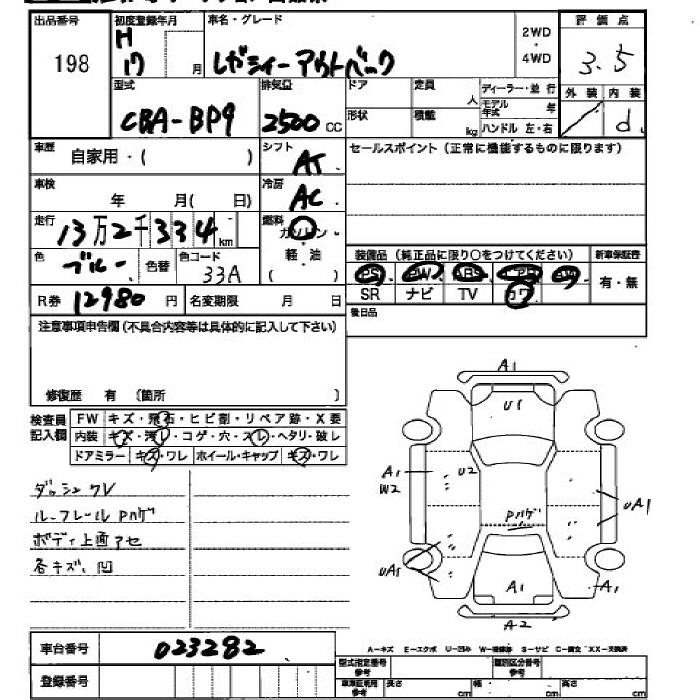 出品番号 初度登録年月 車名・グレード 2WD・4WD 評価点
198 H 17 月 レガシィー アウトバック 3.5
型式 排気量 ドア 定員 人 ディーラー・並行 外装 内装
CBA-BP9 2500 CC 形状 積載 kg モデル年式 年 ハンドル 左・右 d
車歴 自家用・( ) シフト AT セールスポイント(正常に機能するものに限ります)
車検 年 月( 日) 冷房 AC
走行 13万2千334km 燃料 ガソリン・軽油 ( )
色 ブルー 色替 色コード 33A
装備品(純正品に限り○をつけてください) 新車保証書
PS PW ABS AW 有・無
SR ナビ TV カワ
R券 12980円 名変期限 月 日 後日品
注意事項申告欄(不具合内容等は具体的に記入して下さい)
修復歴 有 〔箇所 〕
検査員記入欄 FW キズ・飛石・ヒビ割・リペア跡・X要
内装 キズ・汚レ・コゲ・穴・スレ・ヘタリ・破レ
ドアミラー キズ・ワレ ホイール・キャップ キズ・ワレ
ダッシュワレ
ルーフレールPハゲ
ボディ上面アセ
各キズ、凹
A1
U1
A1
W2
U2
UA1
Pハゲ
UA1
A1
A1
A2
車台番号 023282
A-キズ E-エクボ U-凹み W-補修跡 S-サビ C-腐食 XX-交換済
登録番号
型式指定番号 参考 類別区分番号 参考
車庫証明用 参考 長さ cm 幅 cm 高さ cm